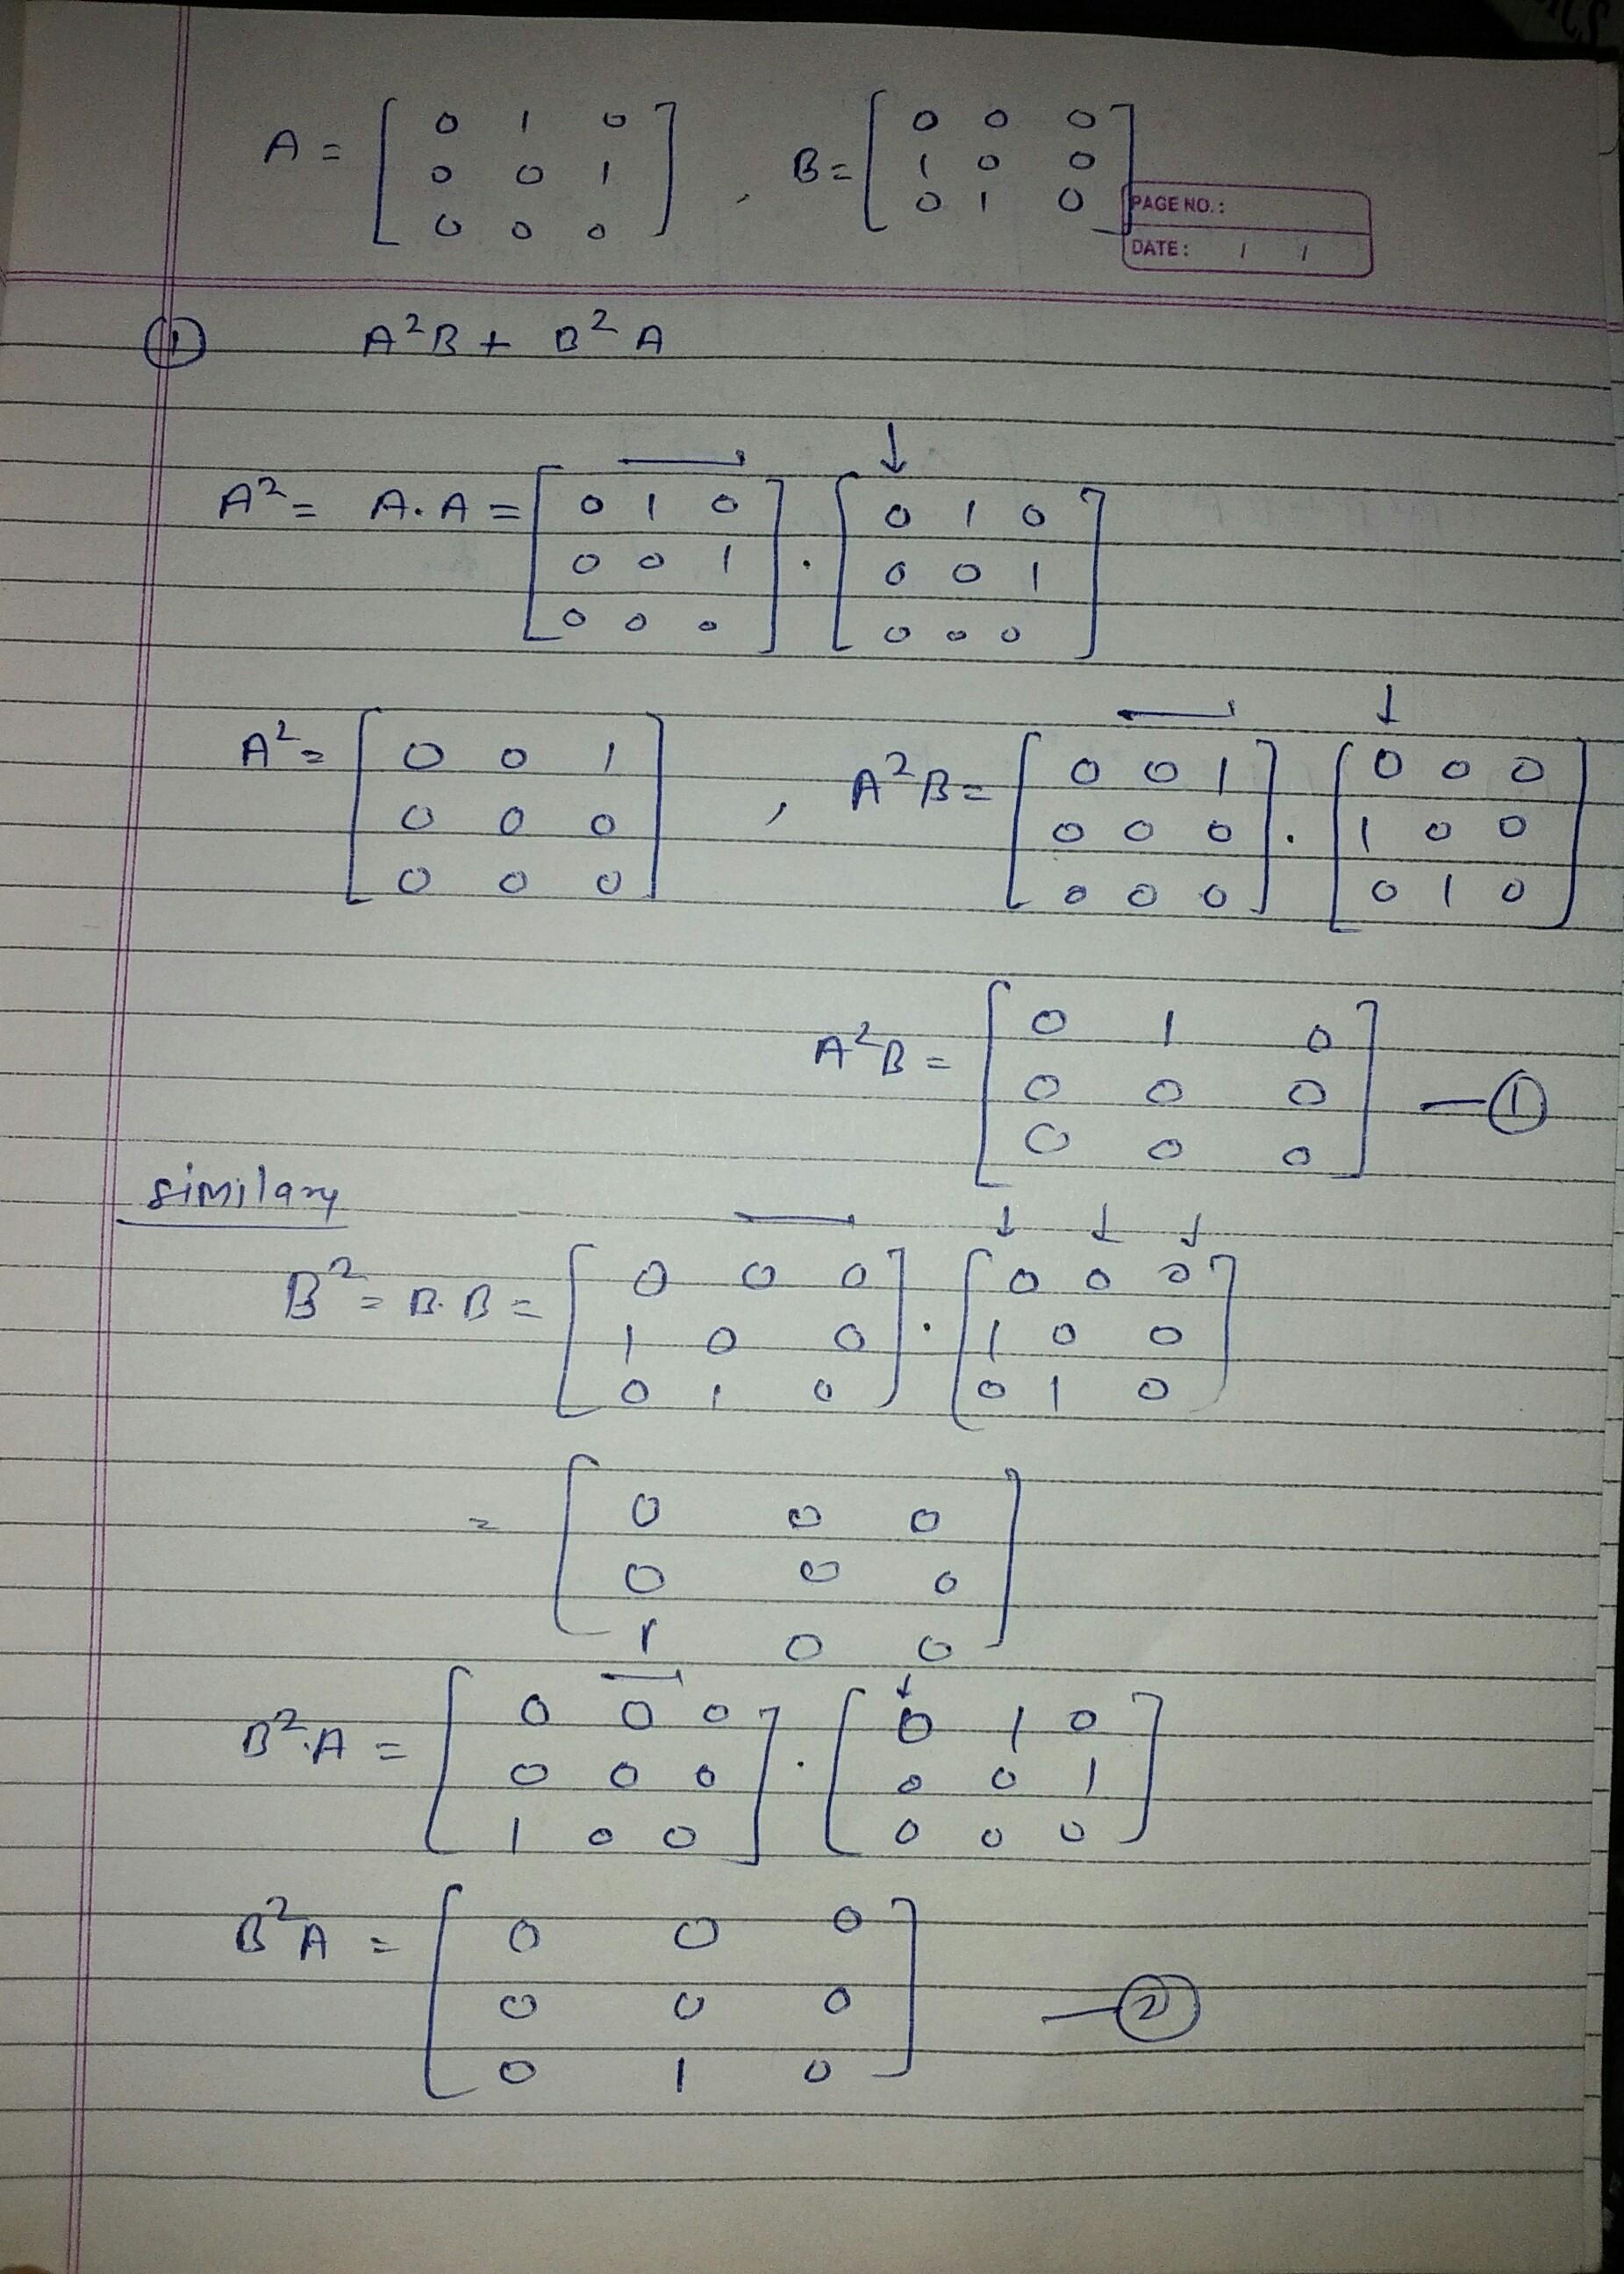 A = [ 0 1 0 , B = [ 0 0 0
0 0 1 1 0 0
0 0 0 ] 0 1 0 ]
PAGE NO.:
DATE: / /
① A²B + B²A
A² = A.A = [ 0 1 0 . [ 0 1 0
0 0 1 0 0 1
0 0 0 ] 0 0 0 ]
A² = [ 0 0 1 , A²B = [ 0 0 1 . [ 0 0 0
0 0 0 0 0 0 1 0 0
0 0 0 ] 0 0 0 ] 0 1 0 ]
A²B = [ 0 1 0
0 0 0 — ①
0 0 0 ]
similary
B² = B.B = [ 0 0 0 . [ 0 0 0
1 0 0 1 0 0
0 1 0 ] 0 1 0 ]
= [ 0 0 0
0 0 0
1 0 0 ]
B².A = [ 0 0 0 . [ 0 1 0
0 0 0 0 0 1
1 0 0 ] 0 0 0 ]
B²A = [ 0 0 0
0 0 0 — ②
0 1 0 ]